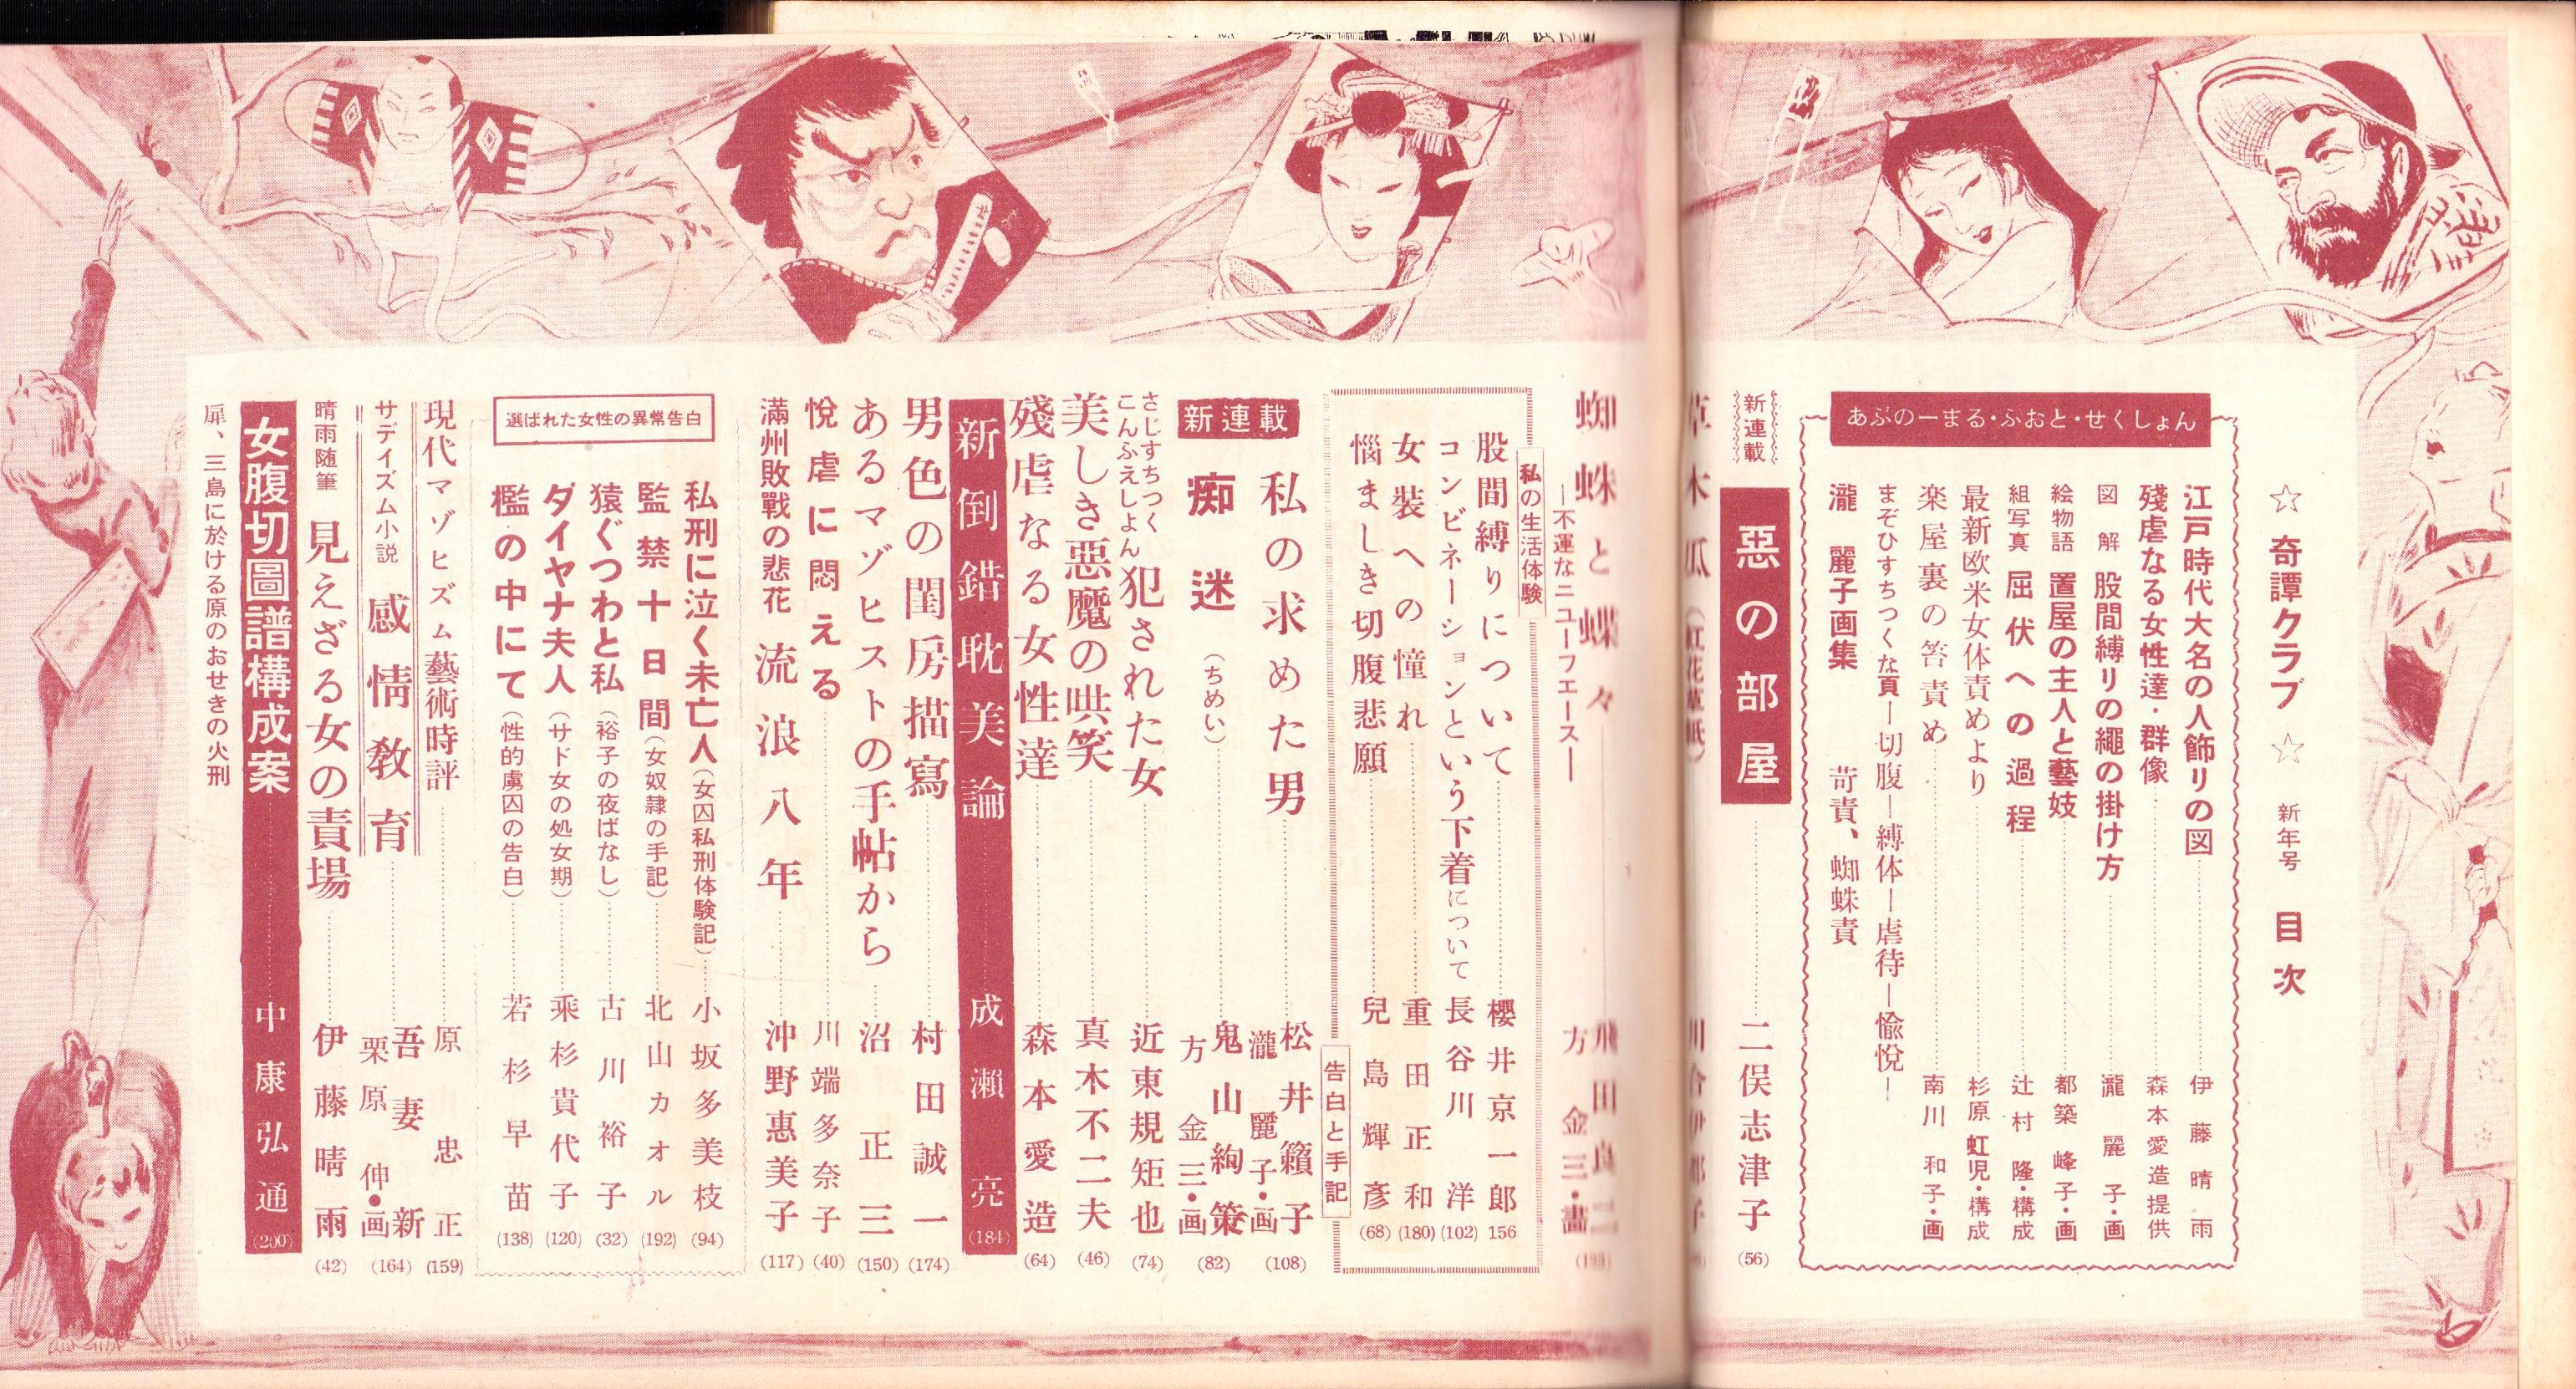 ☆ 奇譚クラブ ☆ 新年号 目次
あぶのーまる・ふおと・せくしょん
江戸時代大名の人飾りの図 伊藤晴雨
殘虐なる女性達・群像 森本愛造提供
図解 股間縛りの繩の掛け方 瀧麗子・画
絵物語 置屋の主人と藝妓 都築峰子・画
組写真 屈伏への過程 辻村隆・構成
最新欧米女体責めより 杉原虹児・構成
楽屋裏の笞責め 南川和子・画
まぞひすちつくな頁―切腹―縛体―虐待―愉悦―
瀧麗子画集 苛責、蜘蛛責
新連載
惡の部屋 二俣志津子 (56)
草木瓜
蜘蛛と蝶々 飛田良二
―不運なニユーフエース― 方金三・畵
私の生活体験
股間縛りについて 櫻井京一郎 156
コンビネーションという下着について 長谷川洋 (102)
女装への憧れ 重田正和 (180)
惱ましき切腹悲願 兒島輝彥 (68)
告白と手記
私の求めた男 松井籟子 (108)
瀧麗子・画
新連載
痴迷 (ちめい) 鬼山絢策 (82)
方金三・画
さじすちつく
こんふえしよん 犯された女 近東規矩也 (74)
美しき惡魔の哄笑 真木不二夫 (46)
殘虐なる女性達 森本愛造 (64)
新倒錯耽美論 成瀬亮 (184)
男色の閨房描寫 村田誠一 (174)
あるマゾヒストの手帖から 沼正三 (150)
悅虐に悶える 川端多奈子 (40)
滿州敗戰の悲花 流浪八年 沖野惠美子 (117)
選ばれた女性の異常告白
私刑に泣く未亡人 (女囚私刑体験記) 小坂多美枝 (94)
監禁十日間 (女奴隷の手記) 北山カオル (192)
猿ぐつわと私 (裕子の夜ばなし) 古川裕子 (32)
ダイヤナ夫人 (サド女の処女期) 乘杉貴代子 (120)
檻の中にて (性的虜囚の告白) 若杉早苗 (138)
現代マゾヒズム藝術時評 原忠正 (159)
サデイズム小説 感情敎育 吾妻新 (164)
栗原伸・画
晴雨随筆 見えざる女の責場 伊藤晴雨 (42)
女腹切圖譜構成案 中康弘通 (200)
扉、三島に於ける原のおせきの火刑